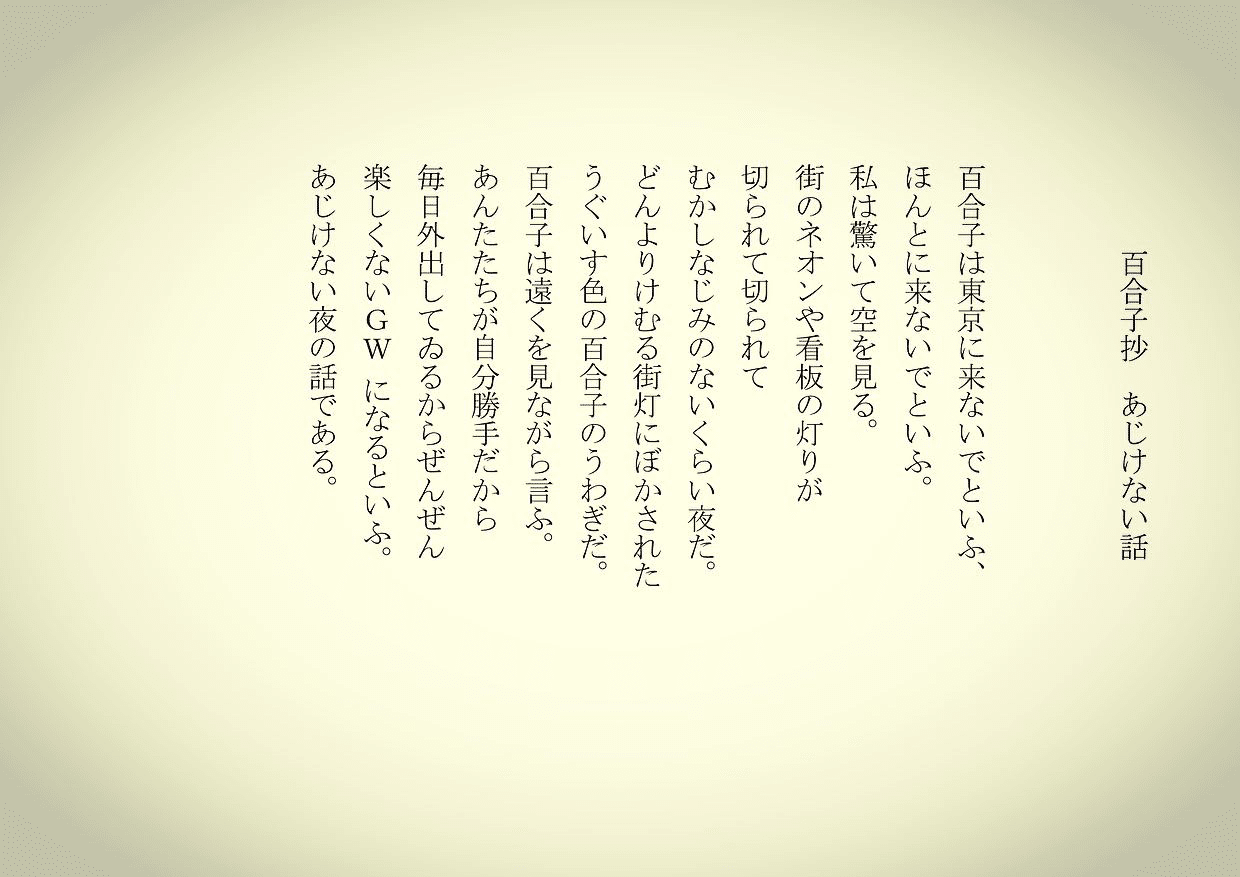 百合子抄　あじけない話
百合子は東京に来ないでといふ、
ほんとに来ないでといふ。
私は驚いて空を見る。
街のネオンや看板の灯りが
切られて切られて
むかしなじみのないくらい夜だ。
どんよりけむる街灯にぼかされた
うぐいす色の百合子のうわぎだ。
百合子は遠くを見ながら言ふ。
あんたたちが自分勝手だから
毎日外出してゐるからぜんぜん
楽しくないＧＷ になるといふ。
あじけない夜の話である。